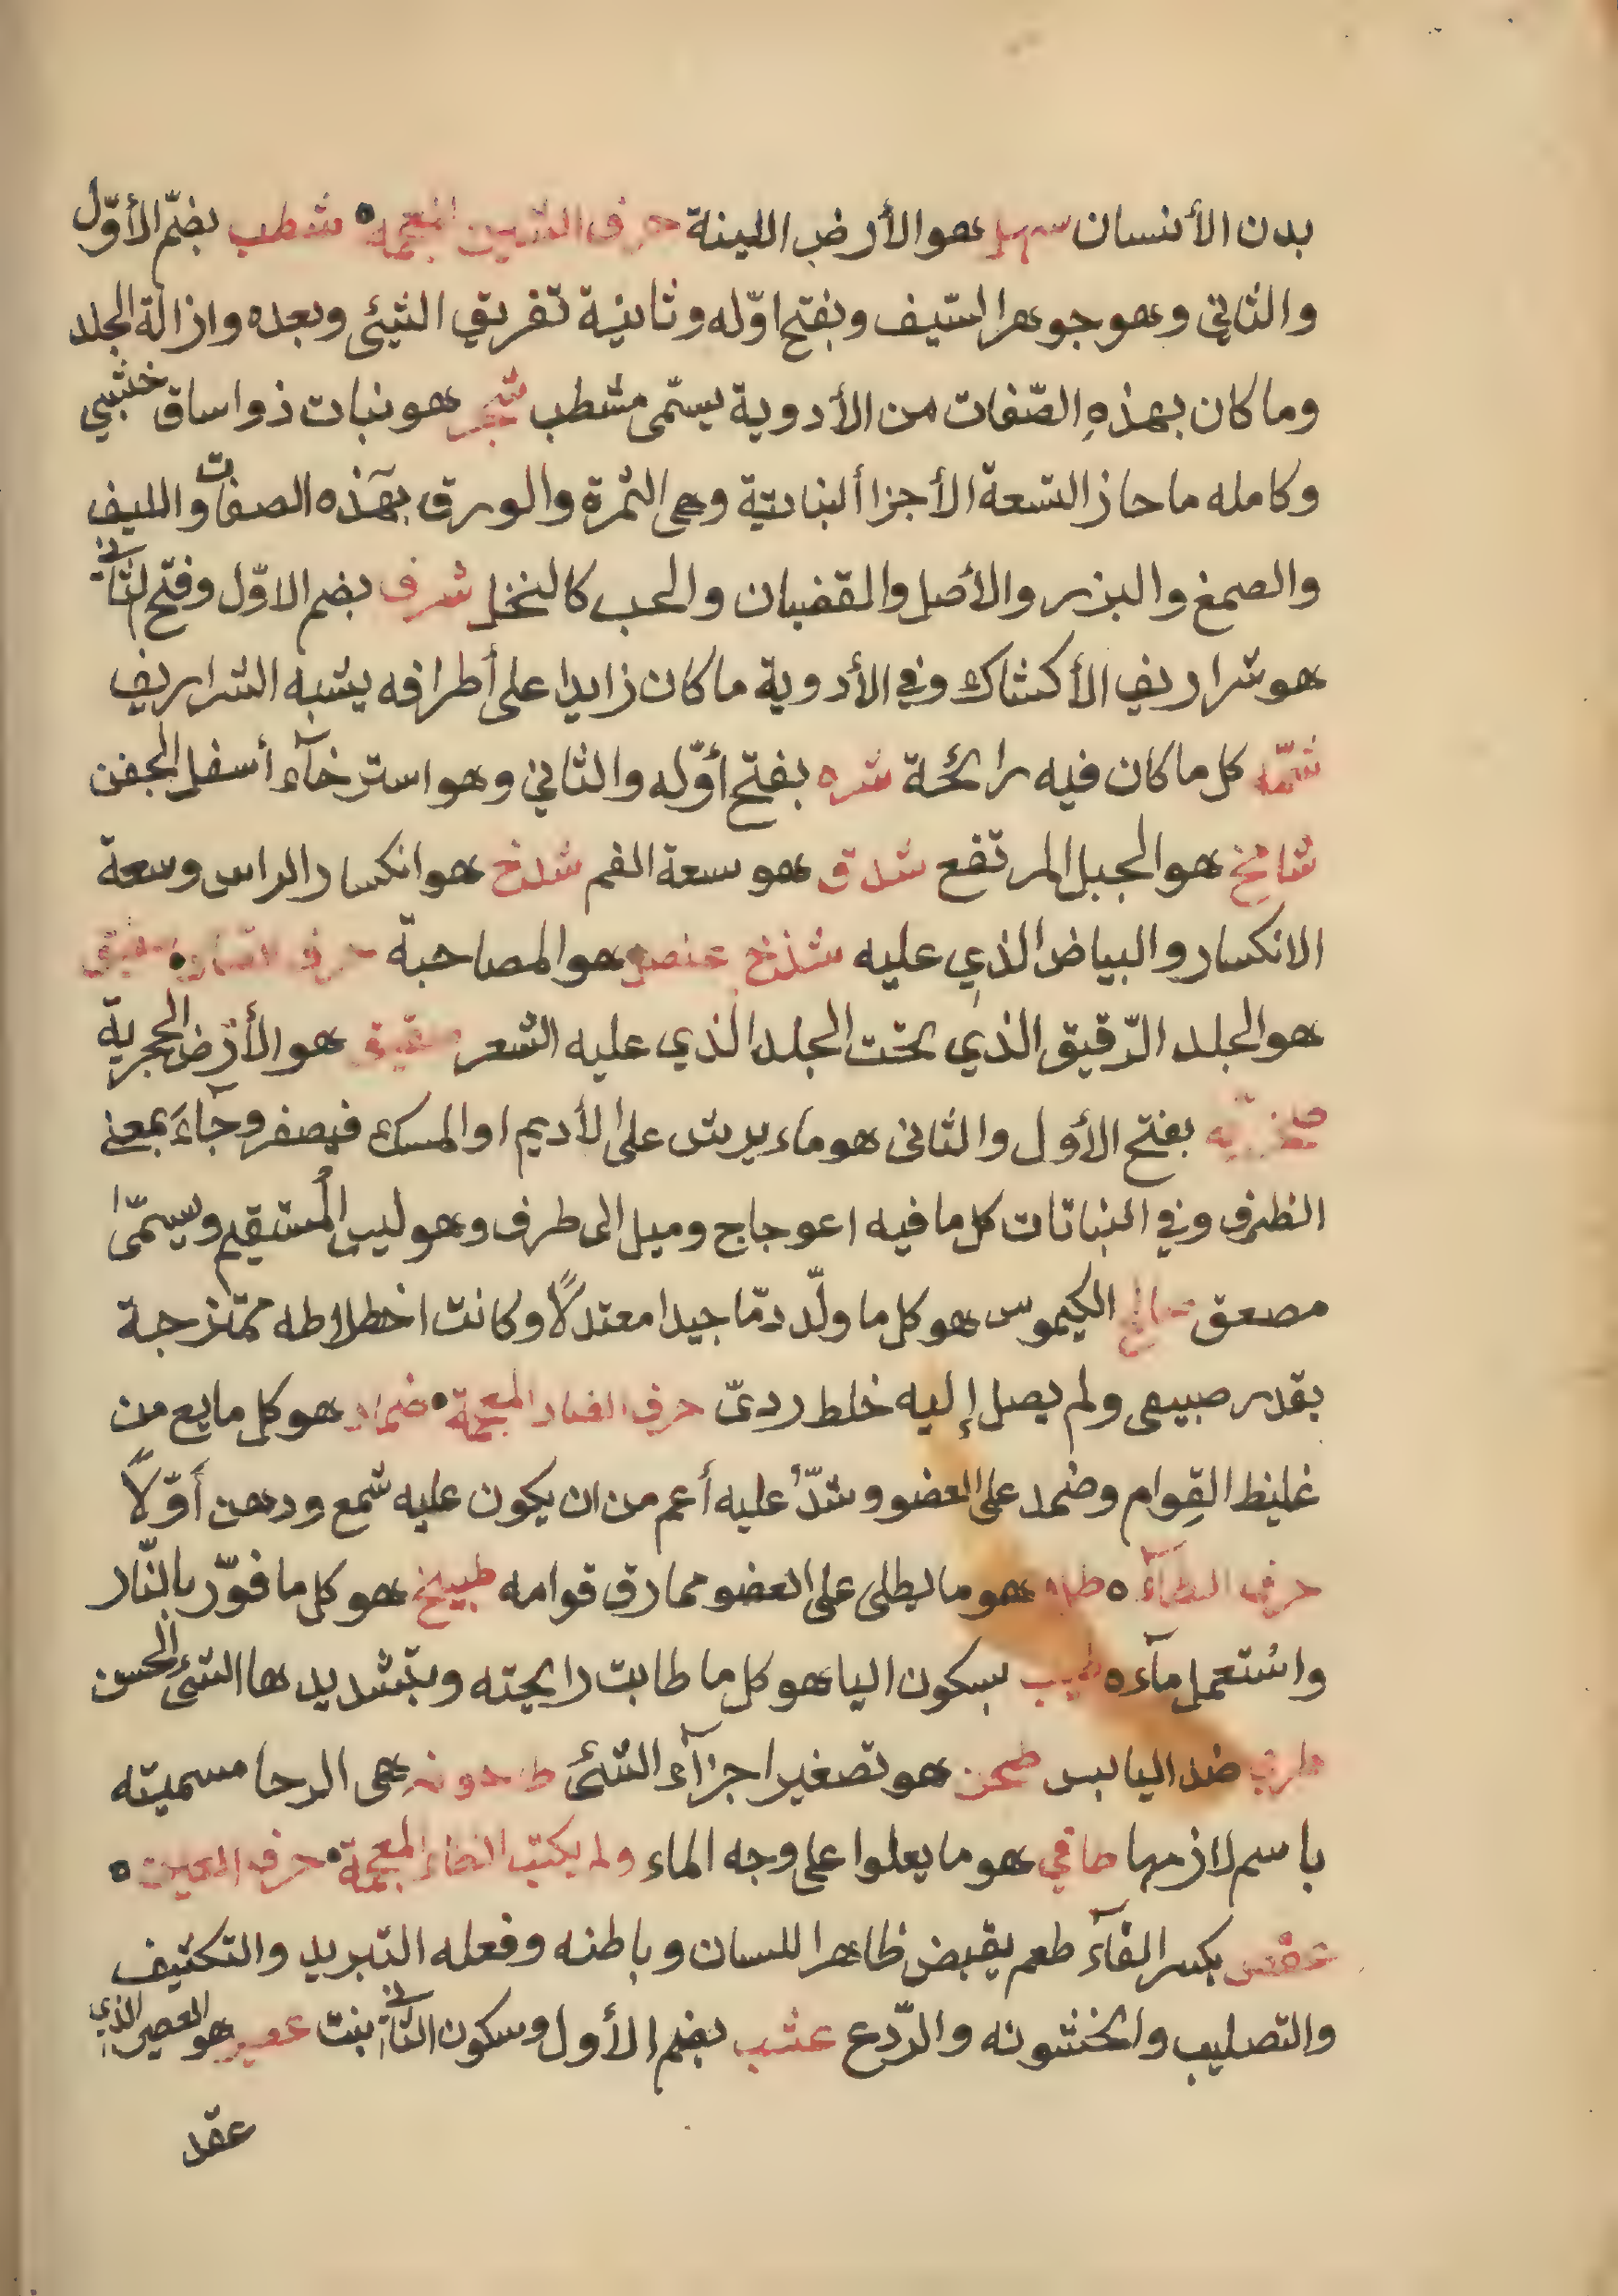 بدن الأنسان سهل هو الأرض اللينة حرف الشين المعجمة شطب بضمّ الأوّل
والثاني وهو جوهر السّيف وبفتح اوّله وثانية تفريق الشئي وبعده وازالة الجلد
وما كان بهذهِ الصّفات من الأدوية يسمّى مشطب شجر هو نبات ذوا ساق خشبي
وكامله ما حاز التسعة الأجزا ألنباتية وهي الثمرة والورق بهَذه الصفات والليف
والصمغ والبزر والأصل والقضبان والحب كالنخل شرف بضم الاوّل وفتح الثّاني
هو شراريف الأكشاك وفي الأدوية ما كان زايدا على أطرافه يشبه الشراريف
شمّه كل ما كان فيه رائحة شره بفتح أوّله والثاني وهو استرخآء أسفل الجفن
شامخ هو الجبل المرتفع شدق هو سعة الفم شدخ هو انكسار الراس وسعة
الانكسار والبياض الذي عليه شذخ عنصر هو المصاحبة حرف الصاد
هو الجلد الرّقيق الذي تحت الجلد الذي عليه الشعر هو الأرض الحجرية
بفتح الأول والثانى هو ماء يرش على الأديم او المسك فيصفر وجآءَ بمعنى
الظرف وفي النباتات كل ما فيه اعوجاج وميل الى طرف وهو ليس المُستقيم ويسمّى
مصعق صالح الكيموس هو كل ما ولّد دمّا جيدا معتدلًا وكانت اخطلاطه ممتزجة
بقدر صبيعى ولم يصل إليه خلط ردئّ حرف الضاد المعجمة ضماد هو كل مايع من
غليظ القِوام وضمد على العضو وشدّ عليه أعم من ان يكون عليه شمع ودهن أَوّلًا
حرف الطآء طلا هو ما يطلى على العضو مما رق قوامه طبيخ هو كل ما فوّر بالنّار
واسُتعمل مآءه طيب بسكون اليا هو كل ما طابت رايحته وبتشديدها الشئ الحسن
طرب ضد اليابس طحن هو تصغير اجزآء الشئ طاحونه هى الرحا مسميته
باسم لازمها طافي هو ما يعلوا على وجه الماء ولم يكتب الظاء المعجمة حرف العين
عفص بكسر الفآء طعم يقبض ظاهر اللسان وباطنه وفعله التبريد والتكثيف
والتصليب والخشونه والرّدع عشب بضم الأول وسكون الثاني نبت عصير هو العصير الذي
عقد